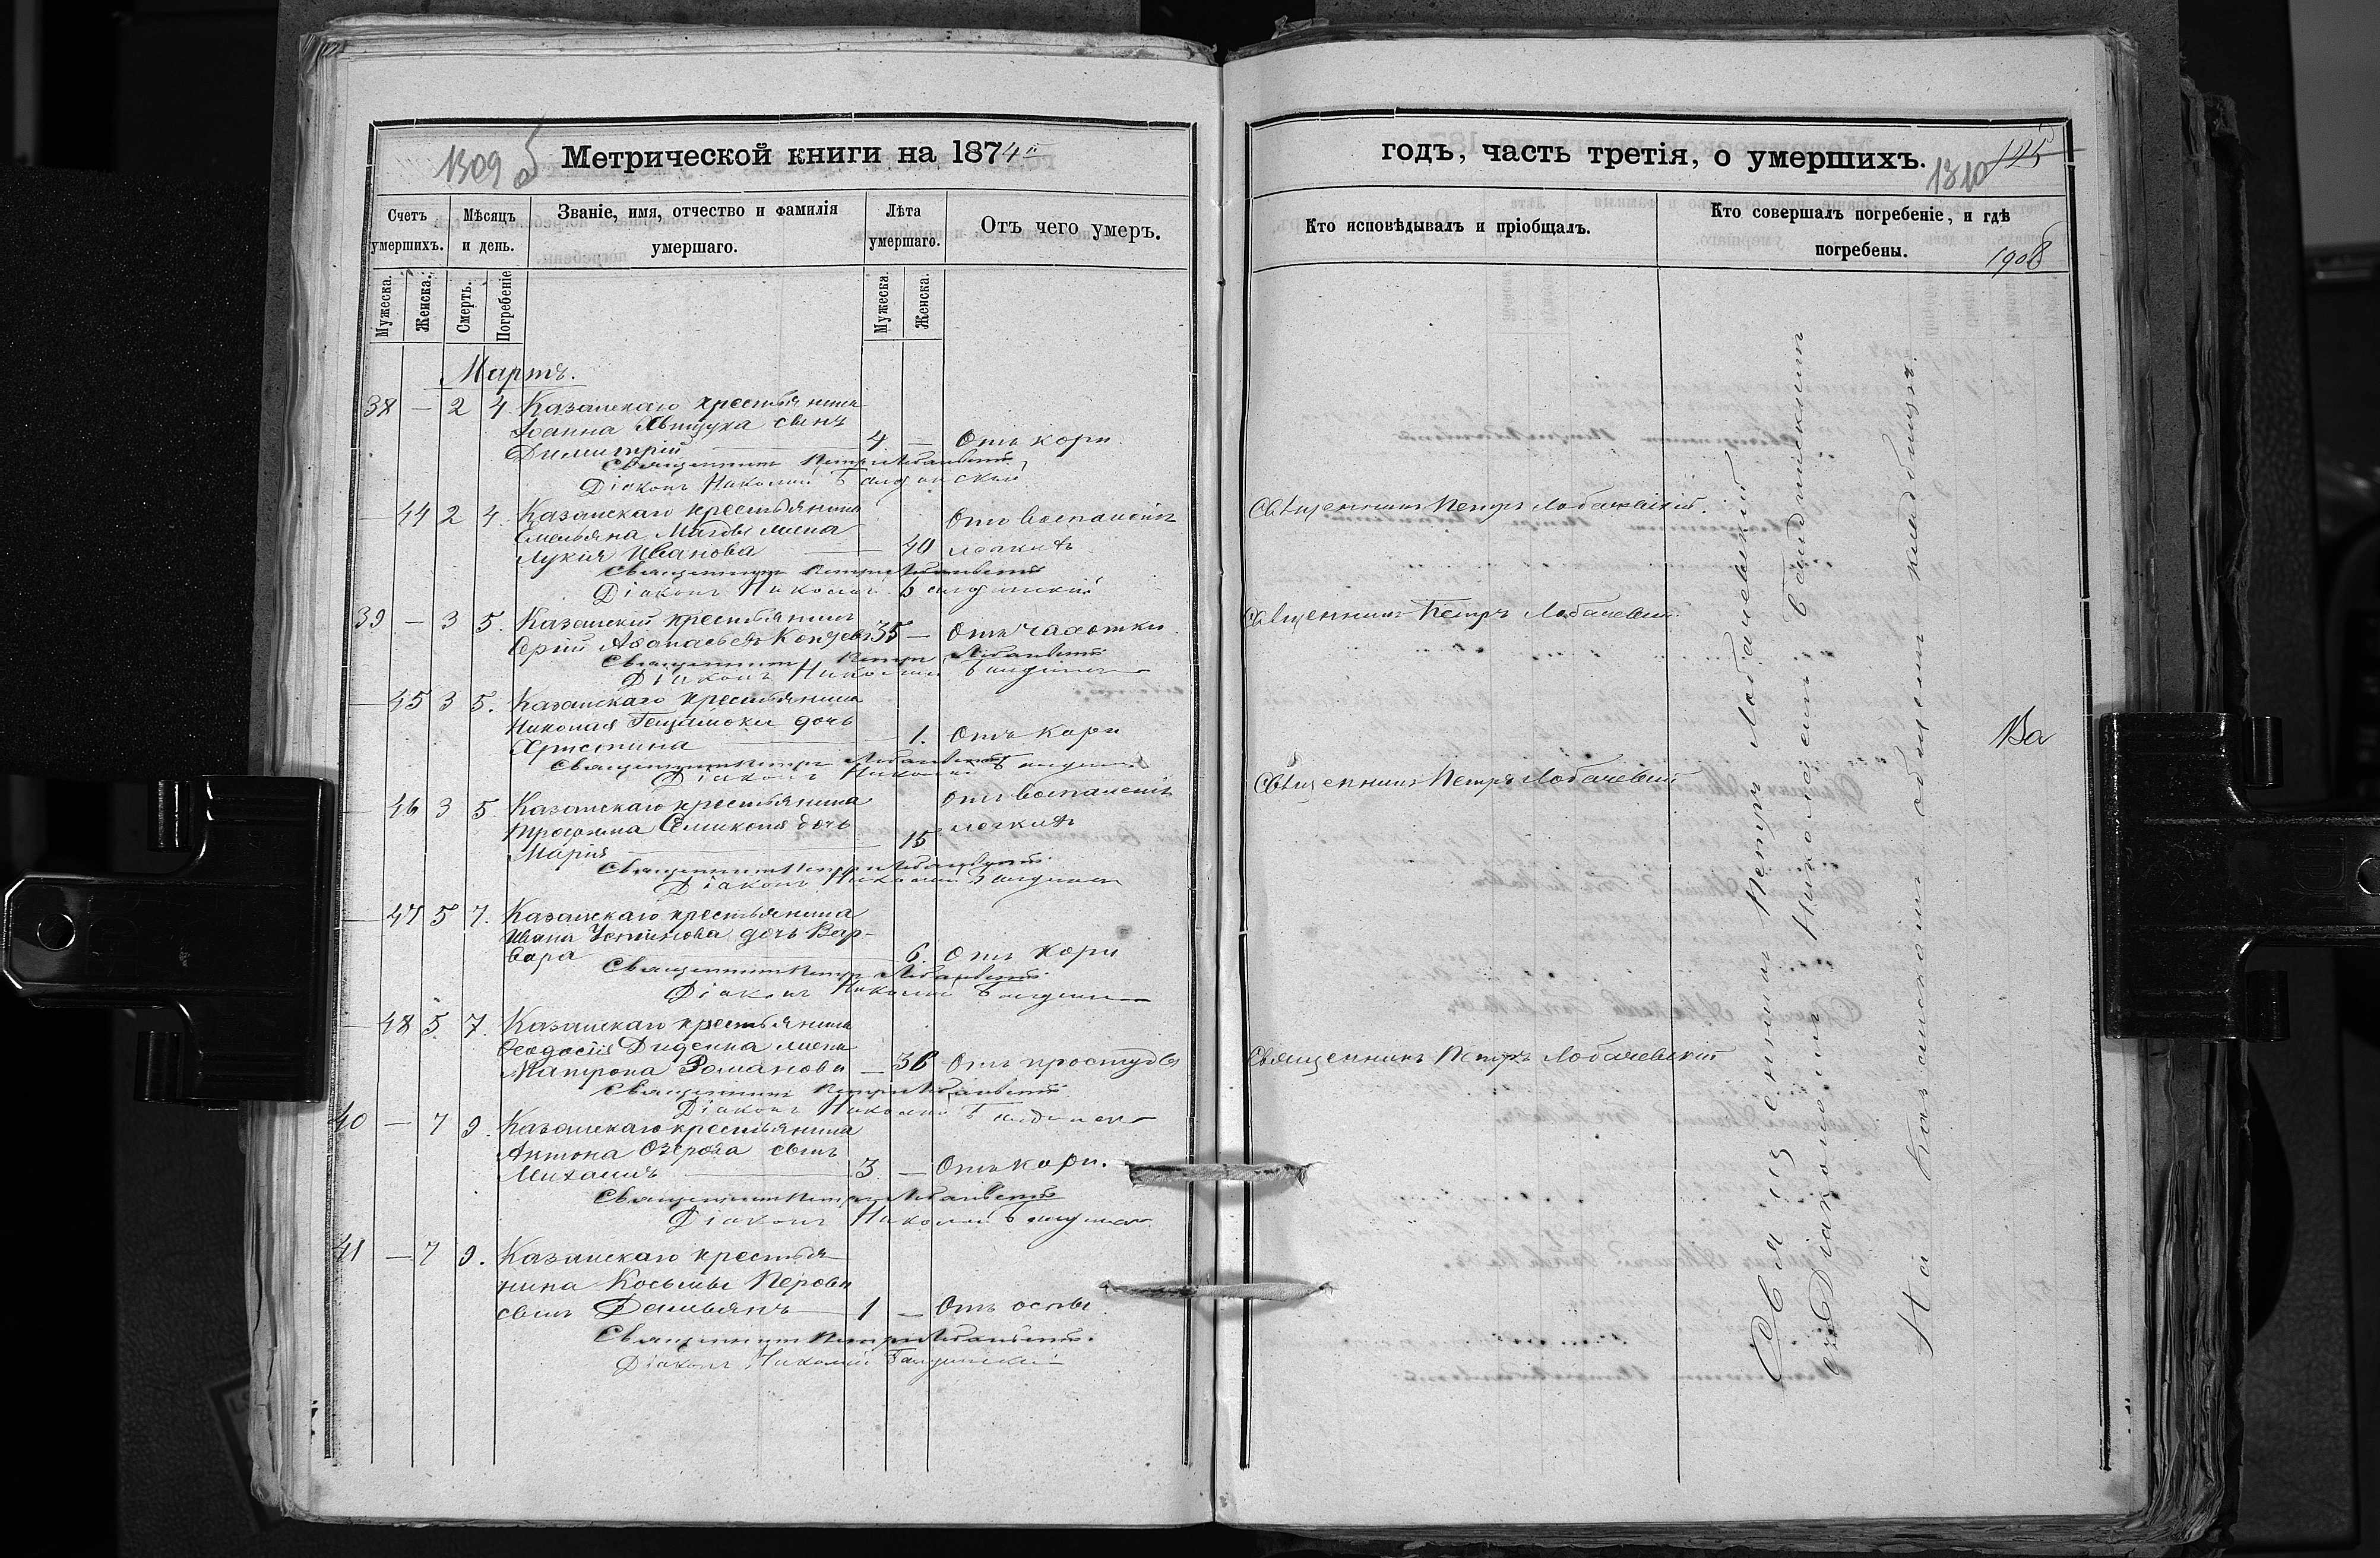 1309 об
Метрической книги на 1874й
Счетъ умершихъ.
Мѣсяцъ и день.
Званіе, имя, отчество и фамилія умершаго.
Лѣта умершаго.
Отъ чего умеръ.
Мужеска. Женска. Смерть. Погребеніе
Мужеска. Женска.
Мартъ.
38 — 2 4. Казанскаго крестьянина
Іоанна сынъ
Димитрій 4 — Отъ кори.
Священникъ Петръ Лобачевскій
Діаконъ Николай
— 44 2 4. Казанскаго крестьянина Отъ воспаленія
Емельяна жена
Лукія Иванова — 40 легкихъ
Священникъ Петръ Лобачевскій
Діаконъ Николай
39 — 3 5. Казанскій крестьянинъ
Сергій Аѳанасьевъ 35 — Отъ чахотки.
Священникъ Петръ Лобачевскій
Діаконъ Николай
— 45 3 5. Казанскаго крестьянина
Николая дочь
Христина — 1. Отъ кори
Священникъ Петръ Лобачевскій
Діаконъ Николай
— 46 3 5. Казанскаго крестьянина Отъ воспаленія
Трофима дочь легкихъ
Марія 15
Священникъ Петръ Лобачевскій
Діаконъ Николай
— 47 5 7. Казанскаго крестьянина
Ивана Устинова дочь Вар-
вара — 6. Отъ кори
Священникъ Петръ Лобачевскій
Діаконъ Николай
— 48 5 7. Казанскаго крестьянина
Ѳеодосія Диденка жена
Матрона Романова — 36 Отъ простуды
Священникъ Петръ Лобачевскій
Діаконъ Николай
40 — 7 9. Казанскаго крестьянина
Антона сынъ
Михаилъ 3 — Отъ кори.
Священникъ Петръ Лобачевскій
Діаконъ Николай
41 — 7 9. Казанскаго крестья-
нина Косьмы Перова
сынъ Демьянъ 1 — Отъ оспы.
Священникъ Петръ Лобачевскій.
Діаконъ Николай
годъ, часть третія, о умершихъ.
1310 125
Кто исповѣдывалъ и пріобщалъ.
Кто совершалъ погребеніе, и гдѣ погребены.
1908
Священникъ Петръ Лобачевскій.
Священникъ Петръ Лобачевскій.
Священникъ Петръ Лобачевскій
Священникъ Петръ Лобачевскій
Священникъ Петръ Лобачевскій
съ Діакономъ Николаемъ
На Казанскомъ общемъ кладбищѣ.